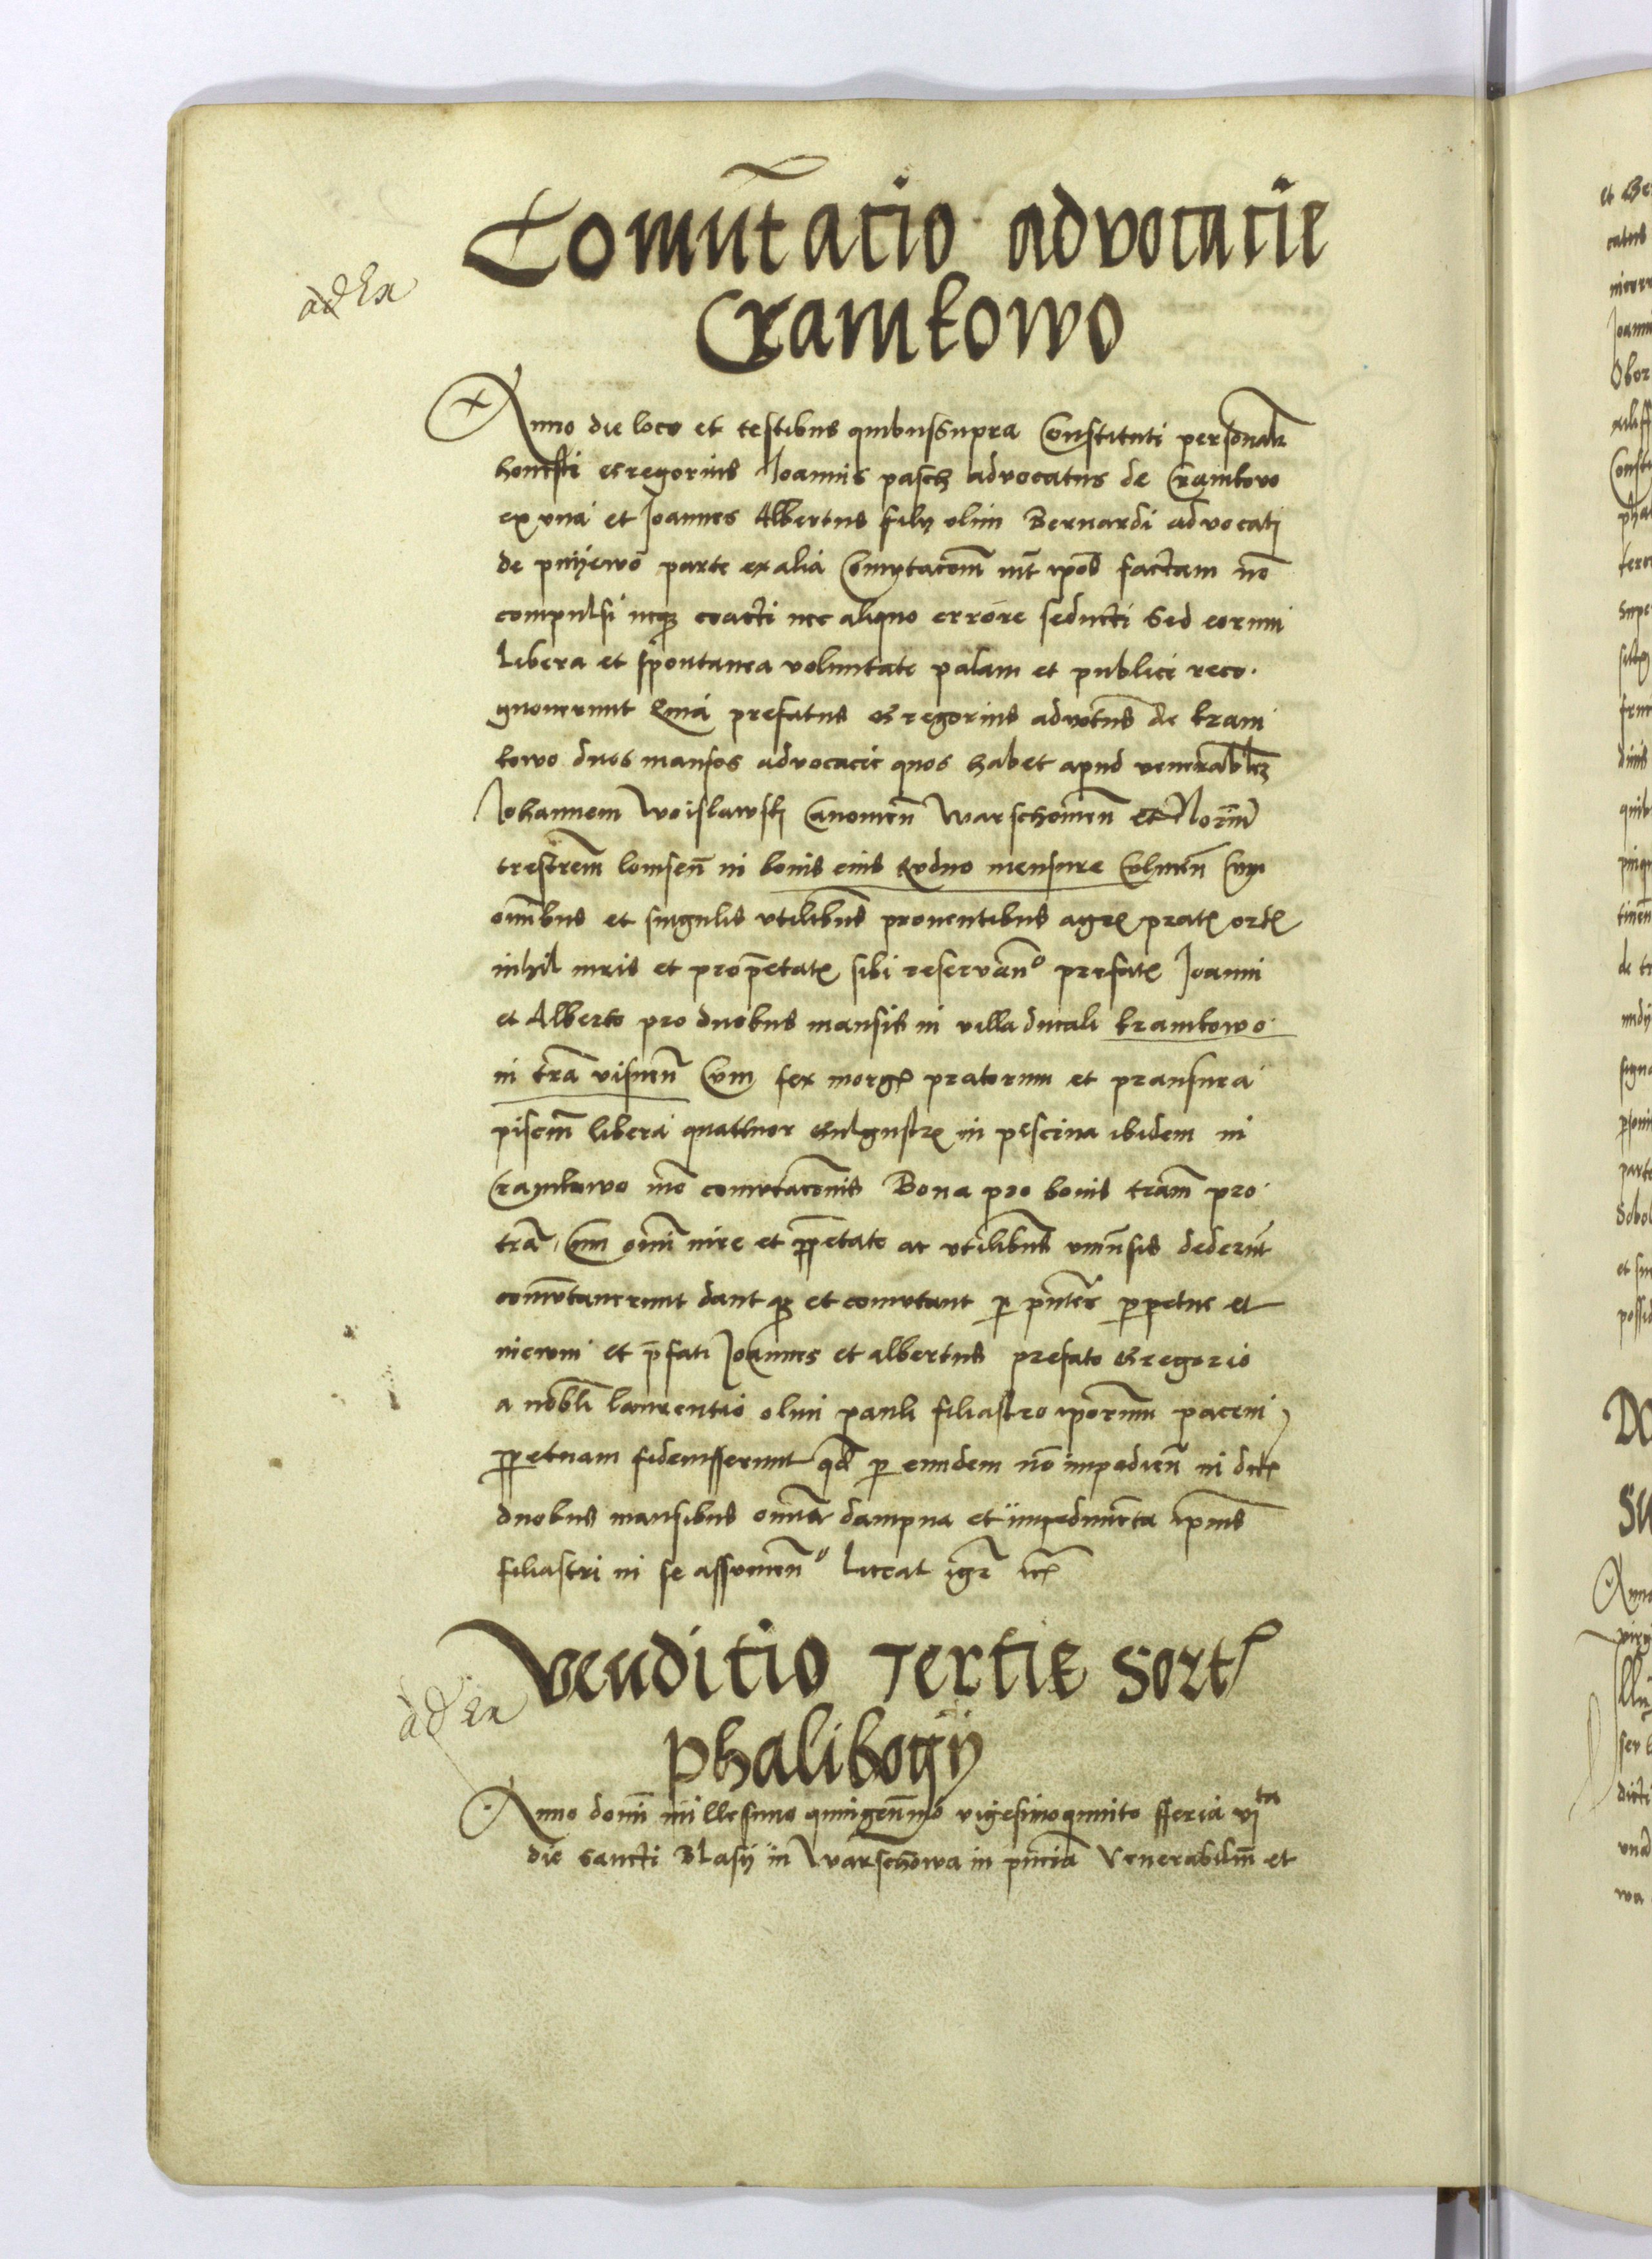 Com̃utacio advocacie
Cramkowo
ad Ex
Anno die loco et testibus quibussupra Constituti personal̃r
honesti Gregorius Joannis pasch advocatus de Cramkowo
ex una et Joannes Albertus filij olim Bernardi advocati
de pnijewo parte ex alia Comutacom̃ int̃ ip̃os factam nõ
compulsi neq̃ coacti nec aliquo errore seducti Sed eorum
libera et spontanea voluntate palam et publice reco
gnouerunt Quia prefatus Gregorius advoc̃tus de kram
kowo duos mansos advocacie quos habet apud venerabil̃ez
Johannem Woislawskj Canonicũ Warschouieñ et
lomseñ in bonis eius mensure Culmeñ Cum
om̃ibus et singulis vtilibus prouentibus agr prat ort
nihil iuris et prop̃etat sibi reservañº prefat Joanni
et Alberto pro duobus mansis in villa ducali kramkowo
in tr̃a visneñ Cum sex morg pratorum et
libera quattuor in piscina ibidem in
Cramkowo m̃o comutacõnis Bona pro bonis tr̃am pro
tr̃a Cum om̃i iure et p̃petate ac vtilibus vniũsis dederũt
com̃utauerunt dant q̃ et comutant p p̃ntes perpetue et
in ewm et p̃fati Joannes et albertus prefato Gregorio
a nobli laurentio olim pauli filiastro ip̃orum pacem
p̃petuam fideiusserunt qd p eundem nõ impedieñ in dict
duobus mansibus omnia dampna et impedimẽta ip̃ius
filiastri in se assumeñº liceat igr etc
Venditio Tertie Sort
phalibogij
ad Ex
Anno domĩ millesimo quingeñmo vigesimoquinto fferia vj ta
die sancti Blasij in Warschowa in p̃ncia Venerabiliũ et